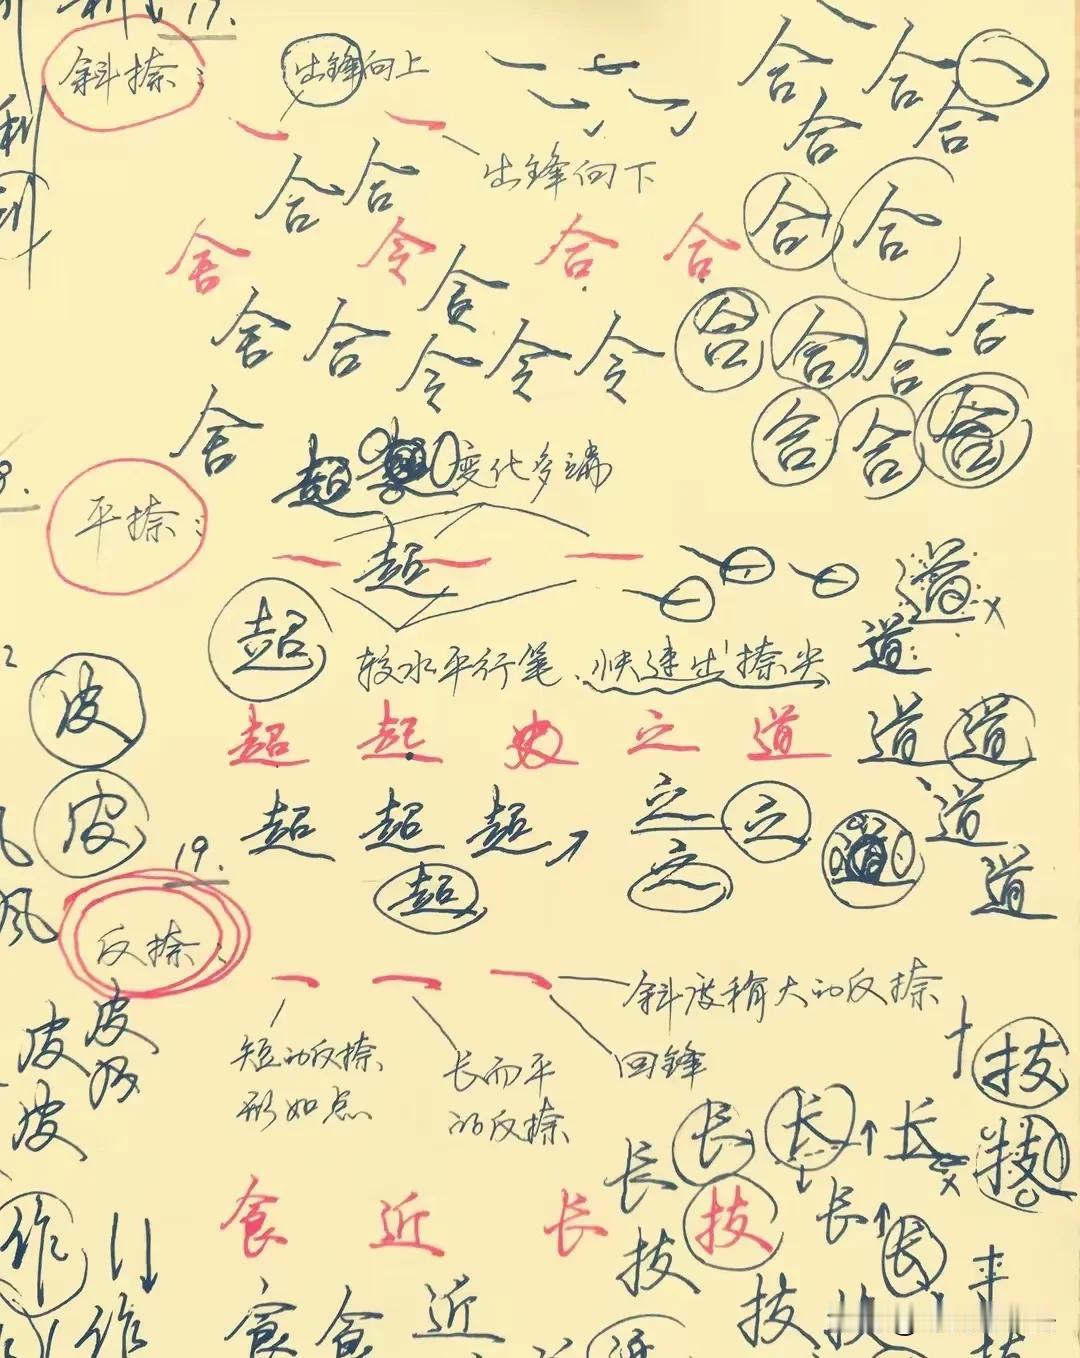 17.
斜捺：
出锋向上
出锋向下
合 合
合 合
合 合
舍 令 合 合
合 合
食
舍 合 令 令 令
合 合 合 合
舍
合 合 合
超
变化多端
平捺：
超
道
超
较水平行笔、快速出捺尖
道
皮
超 起 之 道 道 道
皮
超 超 超 之 之 道 道
超 之 道
19.
反捺：
斜度稍大的反捺
短的反捺
形如点
长而平
的反捺
回锋
皮 皮
皮
技
长 长 长 长
技
食 近 长 技
长 长
作
技
作
食 食 近
技 技